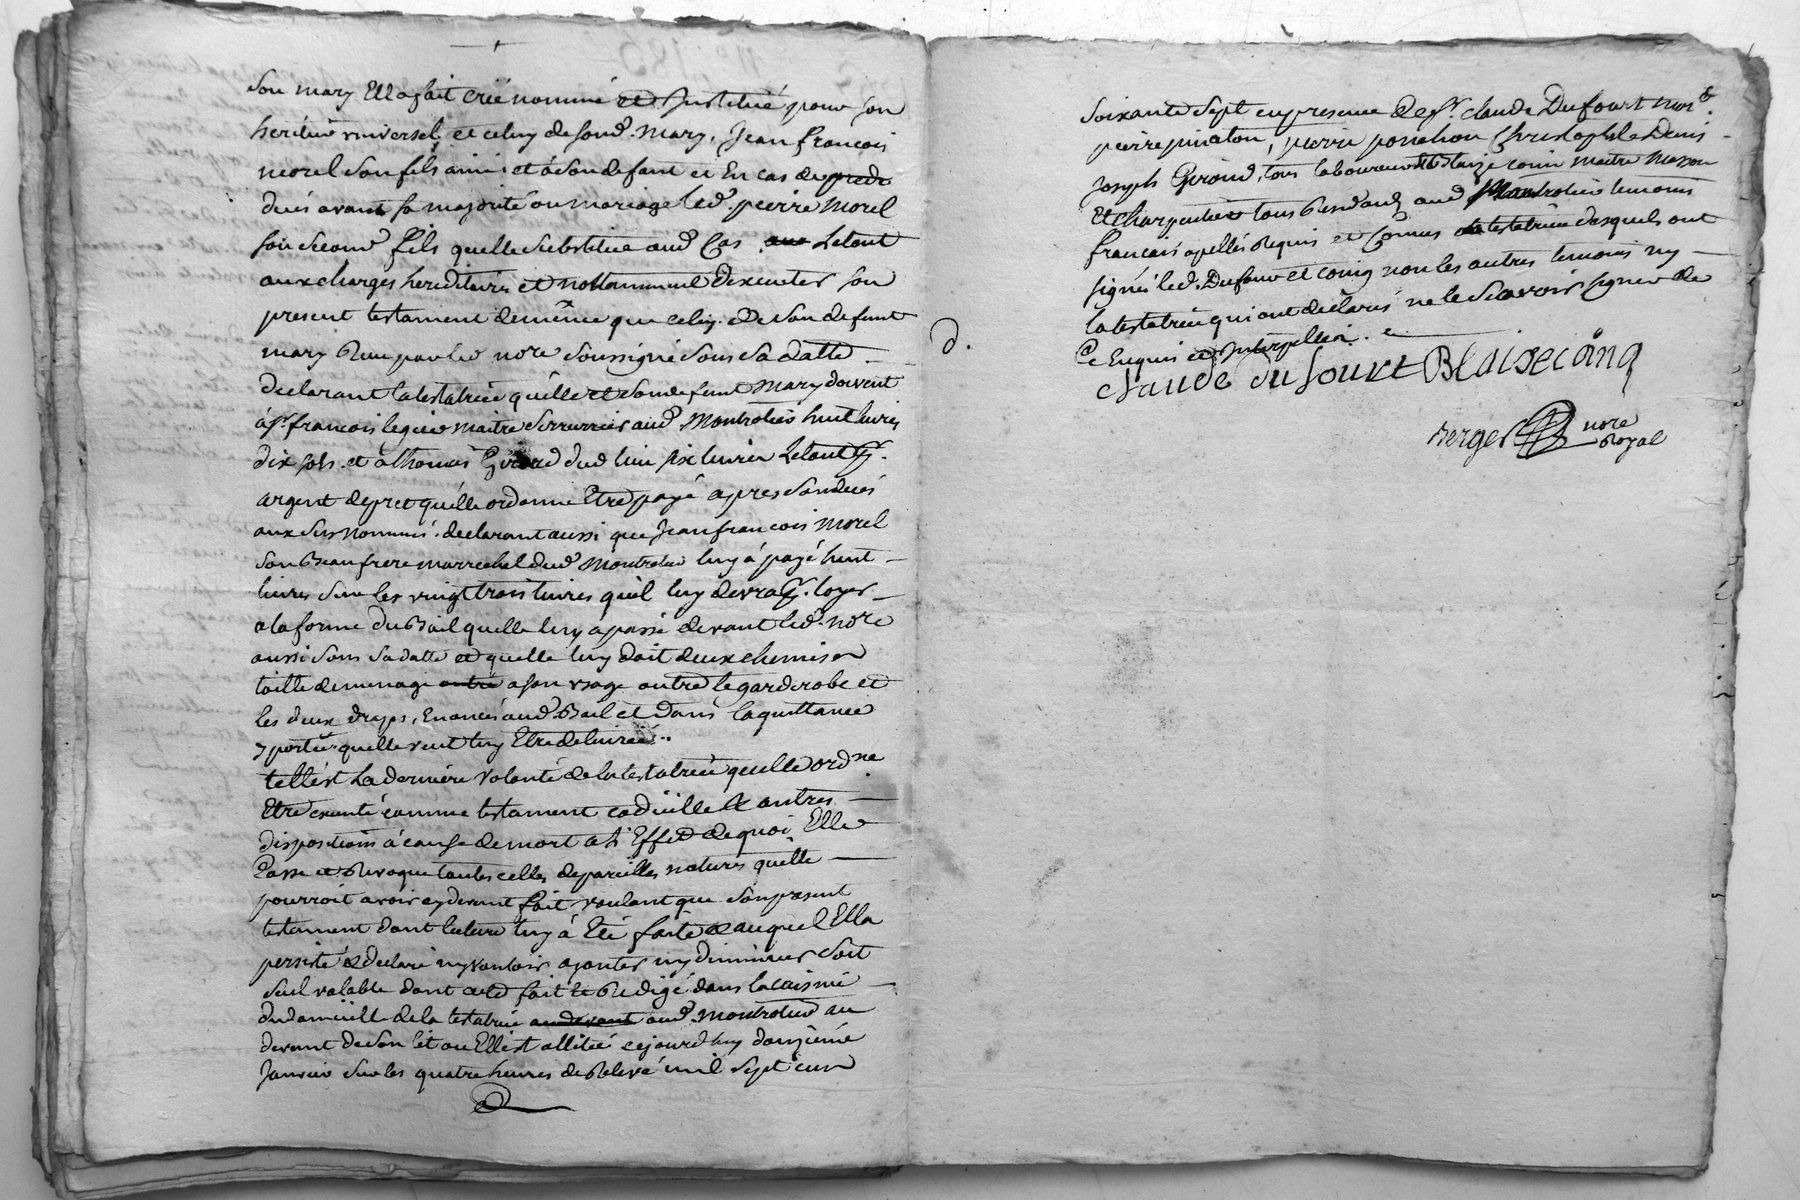 son mary Ell a fait créé nommé et Institué pour son
heritier vniversel, et celuy de sond. mary, Jean françois
morel son fils ainé et à son defaut et En cas de
decés avant sa majorité ou mariage led. pierre morel
son second fils quelle substitue aud. Cas Letout
aux charges hereditaires et nottamment d'executer son
present testament de même que celuy de son defunt
mary Reçu par led nore soussigné sous sa datte
declarant la testatrice qu'elle et son defunt mary doivent
à sr. françois maitre serrurier aud. Montrotier huit livres
dix sols et a thomas Giroud dud lieu six livres Letout
argent de pret qu'elle ordonne Etre payé apres son decés
aux sus nommés. declarant aussi que Jean françois morel
son Beau frere marrechal dud. Montrotier luy à payé huit
livres sur les vingt trois livres qu'il luy devra loyer
a la forme du Bail quelle luy à passé devant led. nore
aussi sous sa datte et quelle luy doit deux chemises
toille de menage a son vsage outre le garderobe et
les deux draps, Enoncés aud. Bail et dans la quittance
y portée quelle veut luy Etre delivrée..
tell'est La derniere volonté de la testatrice quelle ordne
Etre executé comme testament codicille & autres
dispositions à cause de mort a L'Effet de quoi Elle
Casse et Revoque toutes celles de pareilles natures qu'elle
pourroit avoir cy devant fait voulant que son present
testament dont lecture luy à Eté faite & auquel Ella
persisté & declaré ny vouloir ajouter ny diminuer soit
seul valable dont acte fait et Redigé dans la cuisine
du domicille de la testatrice au devant aud. Montrotier au
devant de son lit ou Ell'est allitée cejourd'huy douzieme
Janvier sur les quatre heures de Relevé mil sept cens
soixante sept en presence de sr. claude Dufourt
pierre pinaton, pierre ponchon Christophle Denis
Joseph Giroud, tous laboureurs Blaize conin maitre masson
Et charpentier tous Residants aud Montrotier temoins
francais apellés Requis et Connus la testatrice desquels ont
signés led. Dufour et coniq non les autres temoins ny
la testatrice qui ont declarés ne le sçavoir signer de
ce Enquis et Interpellés.
d.
claude du fourt Blaise conq
Berger nore
Royal